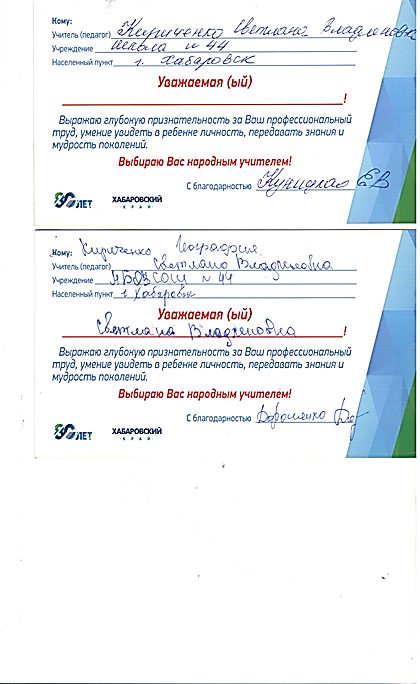 Кому:
Учитель (педагог) Кириченко Светлане Владленовне
Учреждение школа № 44
Населенный пункт г. Хабаровск
Уважаемая (ый)
!
Выражаю глубокую признательность за Ваш профессиональный
труд, умение увидеть в ребенке личность, передавать знания и
мудрость поколений.
Выбираю Вас народным учителем!
С благодарностью ЕВ
80 ЛЕТ ХАБАРОВСКИЙ
КРАЙ
Кому: Кириченко География
Учитель (педагог) Светлана Владленовна
Учреждение СОШ № 44
Населенный пункт г Хабаровск
Уважаемая (ый)
Светлана Владленовна !
Выражаю глубокую признательность за Ваш профессиональный
труд, умение увидеть в ребенке личность, передавать знания и
мудрость поколений.
Выбираю Вас народным учителем!
С благодарностью Дороненко
80 ЛЕТ ХАБАРОВСКИЙ
КРАЙ